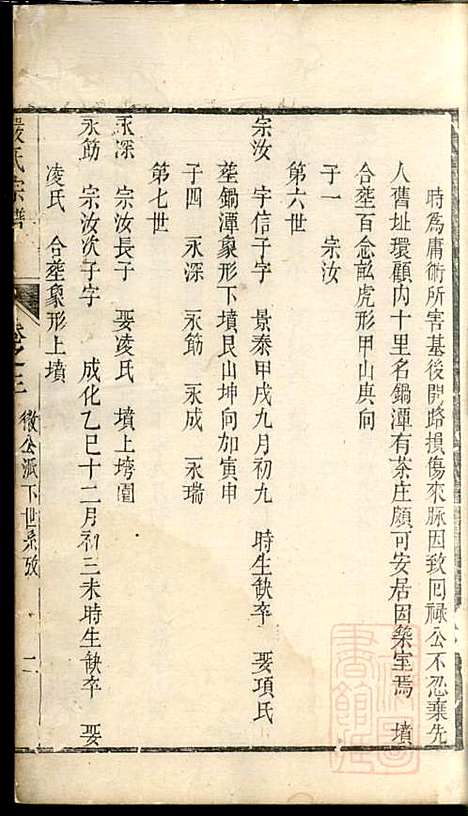 時為庸術所害基後開路損傷來脉因致回祿公不忍棄先
人舊址環顧內十里名鍋潭有茶庄頗可安居因築室焉 墳
合塟百念畝虎形甲山庚向
子一 宗汝
第六世
宗汝 字信子字 景泰甲戌九月初九 時生缺卒 娶項氏
塟鍋潭象形下墳艮山坤向加寅申
子四 永深 永節 永成 永瑞
第七世
永深 宗汝長子 娶凌氏 墳上塆園
永節 宗汝次子字 成化乙巳十二月初三未時生缺卒 娶
凌氏 合塟象形上墳
嚴氏宗譜
卷之三
徵公派下世系攷
二